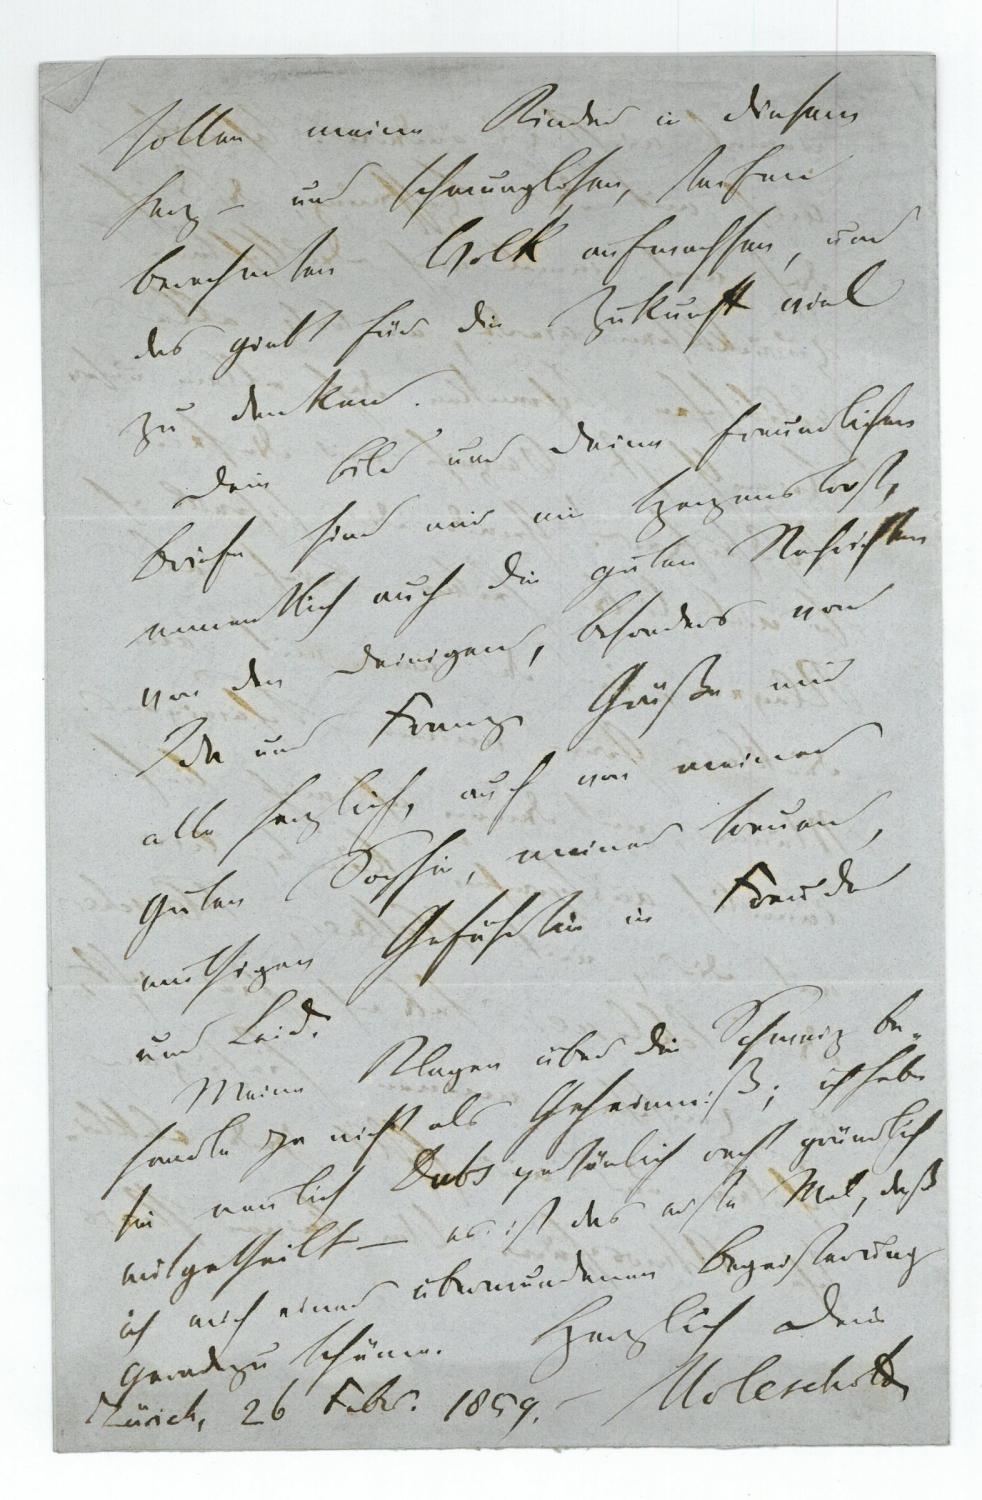 sollen meine Kinder in diesem
herz- und schwunglosen,
berechneten Volk aufwachsen, und
das giebt für die Zukunft viel
zu denken.
Dein Bild und Deine freundlichen
Briefe sind mir ein Herzenstrost,
namentlich auch die guten Nachrichten
von den Deinigen, besonders von
Ida und Franz. Grüße mir
alle herzlich, auch von meiner
guten Sophie, meiner treuen,
muthigen Gefährtin in Freude
und Leid.
Meine Klagen über die Schweiz be-
handle ja nicht als Geheimniß; ich habe
sie neulich Dubs persönlich recht gründlich
mitgetheilt – es ist das erste Mal, daß
ich mich einer überwundenen Begeisterung
geradezu schäme. Herzlich Dein
Zürich, 26 Febr. 1859. – Moleschott